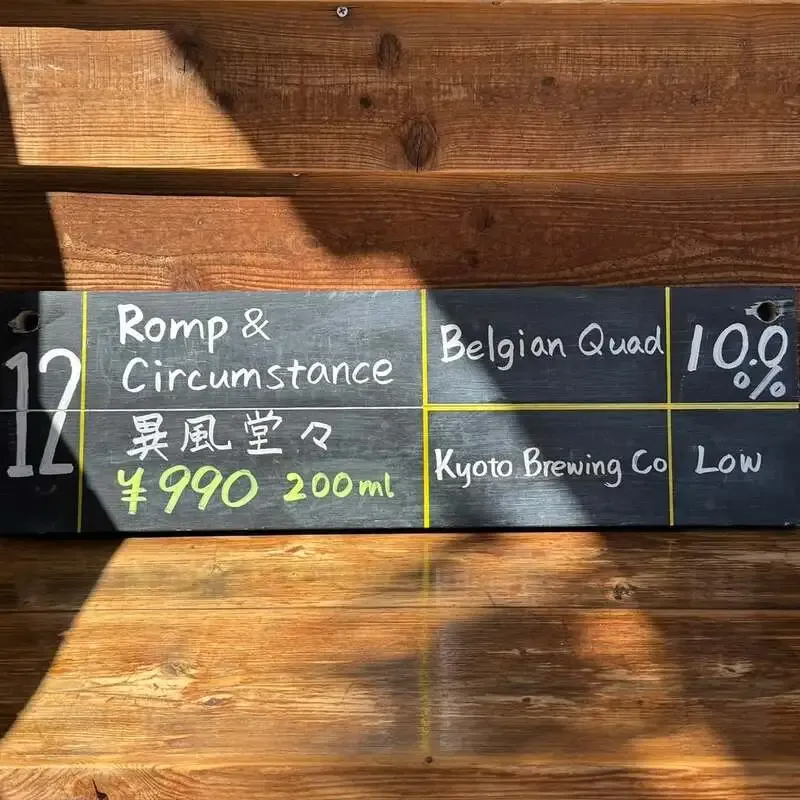 12
Romp &
Circumstance
異風堂々
¥990 200ml
Belgian Quad
Kyoto Brewing Co
10.0
%
Low